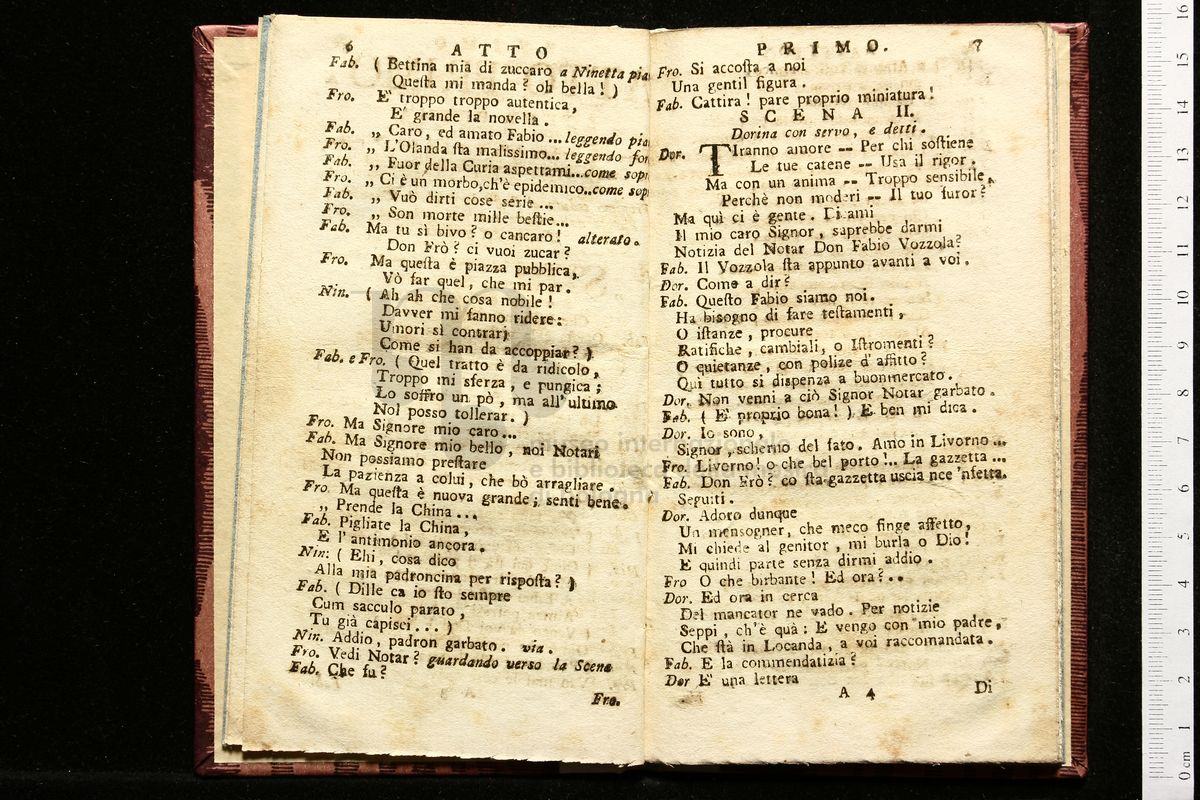 6 ATTO
Fab. ( Bettina mia di zuccaro a Ninetta pia
Questa mi manda ? oh bella ! )
Fro. E' troppo troppo autentica,
E' grande la novella .
Fab. ,, Caro, ed amato Fabio ... leggendo pia
Fro. ,, L'Olanda sta malissimo... leggendo for
Fab. ,, Fuor della Curia aspettami...come sop
Fro. ,, Ci è un morbo,ch'è epidemico..come sop
Fab. ,, Vuò dirti cose serie ...
Fro. ,, Son morte mille bestie...
Fab. Ma tu sì bivo ? o cancaro ! alterato.
Don Frò ? ci vuoi zucar ?
Fro. Ma questa è piazza pubblica,
Vò far quel, che mi par.
Nin. ( Ah ah che cosa nobile !
Davver mi fanno ridere :
Umori sì contrarj
Come si han da accoppiar ? )
Fab. e Fro. ( Quel tratto è da ridicolo,
Troppo mi sferza , e pungica ;
Lo soffro un pò , ma all' ultimo
Nol posso tollerar. )
Fro. Ma Signore mio caro...
Fab. Ma Signore mio bello , noi Notari
Non possiamo prestare
La pazienza a colui, che bò arragliare .
Fro. Ma questa è nuova grande; senti bene.
,, Prende la China ...
Fab. Pigliate la China,
E l' antimonio ancora.
Nin: ( Ehi, cosa dico
Alla mia padroncina per risposta ? )
Fab. ( Dille ca io sto sempre
Cum sacculo parato,
Tu già capisci... )
Nin. Addio, padron garbato. via.
Fro. Vedi Notar ? guardando verso la Scena
Fab. Che fu ?
Fro.
PRIMO. 7
Fro. Si accosta a noi
Una gentil figura.
Fab. Cattira ! pare proprio miniatura !
SCENA II.
Dorina con servo, e detti.
Dor. TIranno amore -- Per chi sostiene
Le tue catene -- Usa il rigor.
Ma con un anima -- Troppo sensibile,
Perchè non moderi -- Il tuo furor ?
Ma quì ci è gente. Dicami
Il mio caro Signor, saprebbe darmi
Notizia del Notar Don Fabio Vozzola?
Fab. Il Vozzola sta appunto avanti a voi.
Dor. Come a dir ?
Fab. Questo Fabio siamo noi.
Ha bisogno di fare testamenti,
O istanze, procure
Ratifiche, cambiali, o Istromenti ?
O quietanze, con polize d' affitto ?
Qui tutto si dispenza a buonmercato.
Dor. Non venni a ciò Signor Notar garbato.
Fab. ( E' proprio bona! ) E ben mi dica.
Dor. Io sono,
Signor, scherno del fato. Amo in Livorno ...
Fro. Livorno! o che bel porto !.. La gazzetta ...
Fab. Don Frò ? co sta gazzetta uscia nce 'nfetta.
Seguiti.
Dor. Adoro dunque
Un mensogner, che meco finge affetto,
Mi chiede al genitor, mi burla o Dio!
E quindi parte senza dirmi addio.
Fro O che birbante ! Ed ora ?..
Dor. Ed ora in cerca
Del mancator ne vado. Per notizie
Seppi, ch'è quà : E vengo con mio padre,
Che stà in Locanda, a voi raccomandata.
Fab. E la commendatizia ?
Dor E' una lettera
A 4 Di